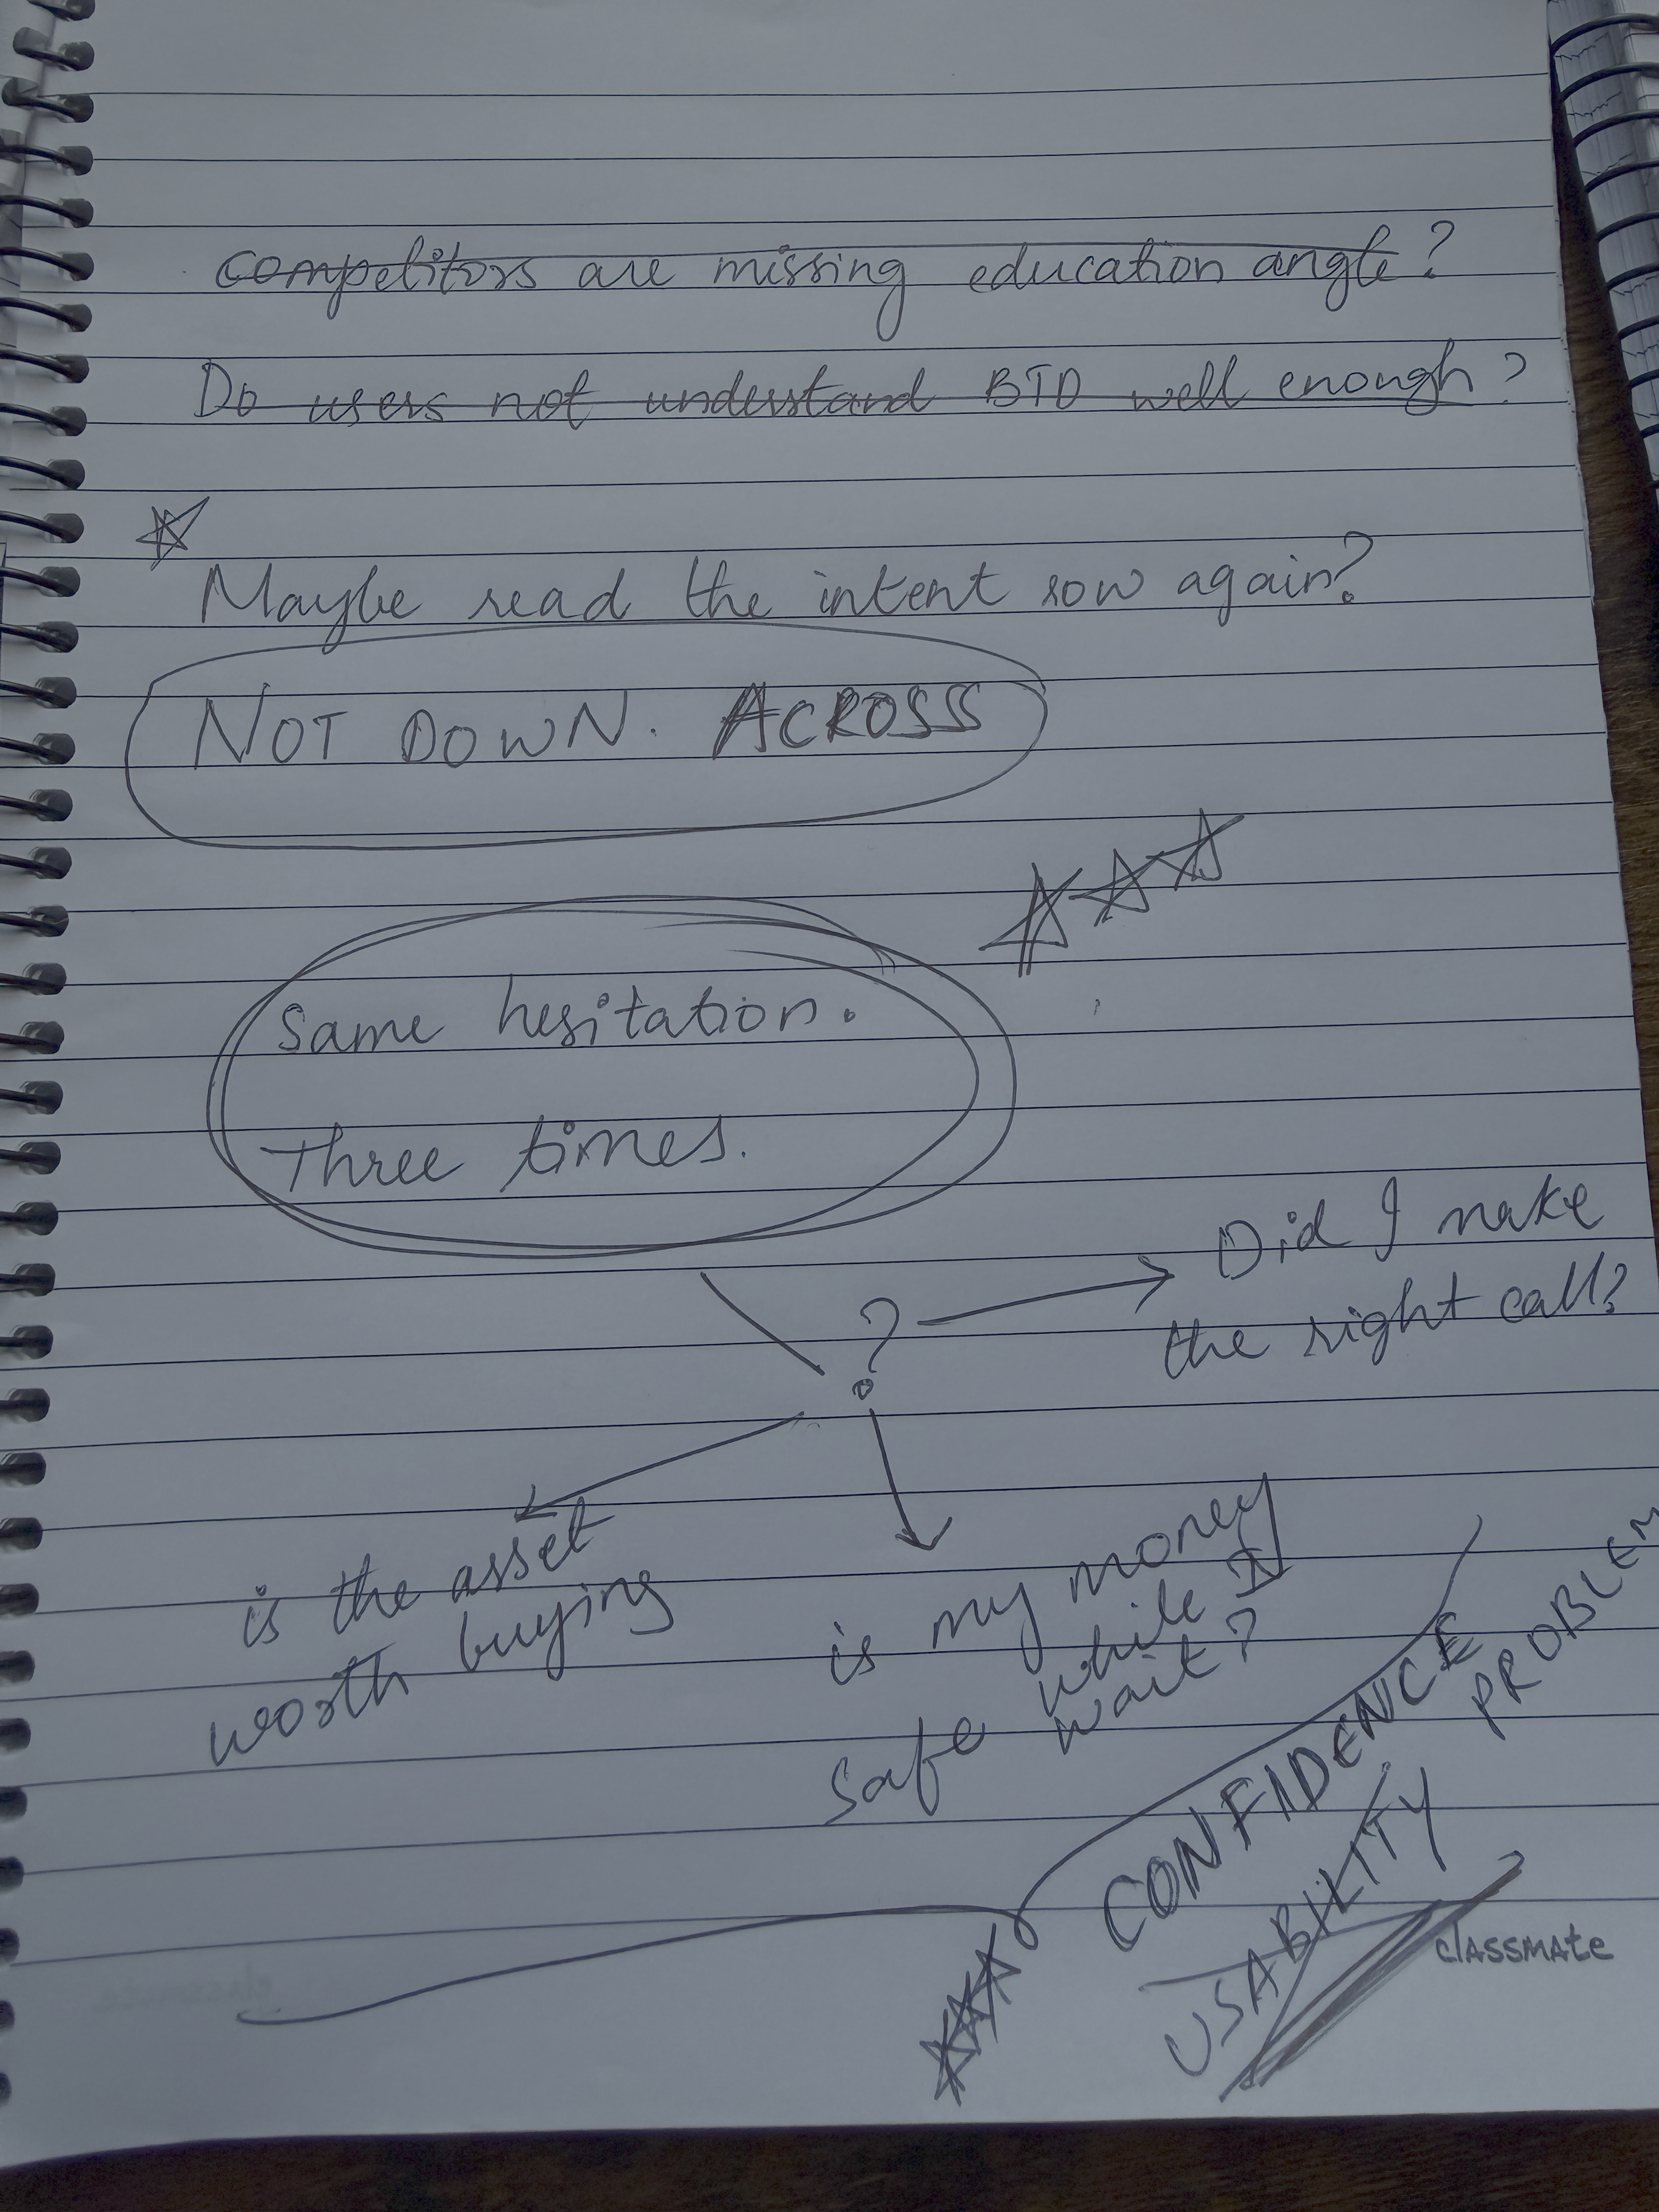 Competitors are missing education angle?
Do users not understand BTD well enough?
Maybe read the intent row again?
NOT DOWN. ACROSS
Same hesitation.
Three times.
?
Did I make
the right call?
is the asset
worth buying
is my money
safe while I
wait?
CONFIDENCE
PROBLEM
USABILITY
classmate